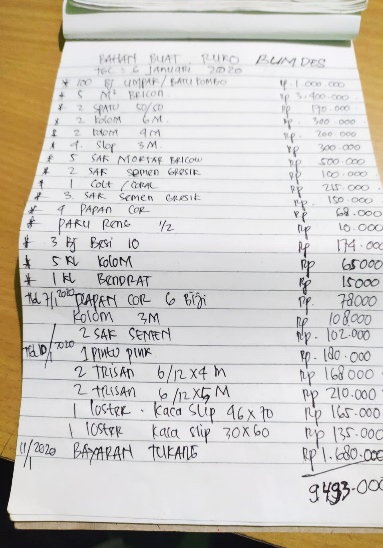 BAHAN BUAT RUKO BUMDES
TGL : 6 JANUARI 2020
* 100 Bj UMPAK / BATU TOMBO Rp 1.000.000
* 5 M² BRICON Rp 3.400.000
* 2 SPATU 50/50 Rp 170.000
* 2 KOLOM 6 M Rp 300.000
* 2 KOLOM 4 M Rp 200.000
* 4 Slop 3 M Rp 300.000
* 5 SAK MORTAR BRICON Rp 500.000
* 2 SAK SEMEN GRESIK Rp 100.000
* 1 COLT / CORAL Rp 215.000
* 3 SAK SEMEN GRESIK Rp 150.000
* 4 PAPAN COR Rp 68.000
* PAKU RENG 1/2 Rp 10.000
* 3 Bj Besi 10 Rp 174.000
* 5 KL KOLOM Rp 65000
* 1 KL BENDRAT Rp 15000
TGL 7/1 2020 PAPAN COR 6 Biji Rp 78000
KOLOM 3M Rp 108000
2 SAK SEMEN Rp 102.000
TGL 10/1 2020 1 PINTU PINK Rp 180.000
2 TRISAN 6/12 X 4 M Rp 168000
2 TRISAN 6/12 X 5 M Rp 210.000
1 LOSTER . Kaca Slip 46 X 70 Rp 165.000
1 LOSTER Kaca Slip 30 X 60 Rp 135.000
11/1 2020 BAYARAN TUKANG Rp 1.680.000
9493.000